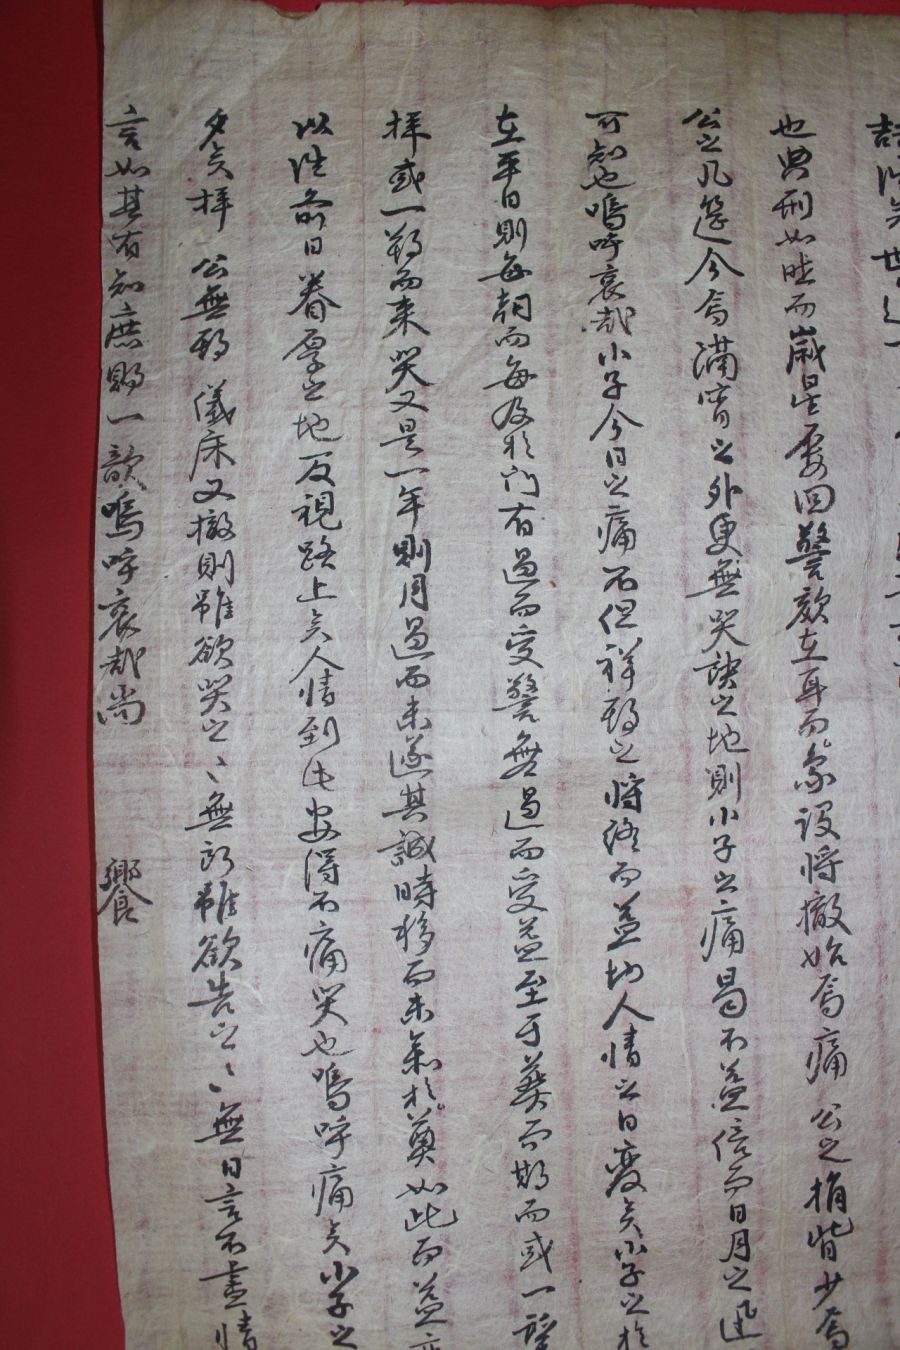 也典刑如昨而嵗星要回警欬在耳而象設將撤始焉痛 公之捐背少焉
公之凡筵今焉満宵之外更無哭訣之地則小子之痛曷不益倍而日月之迅
可知也嗚呼哀哉小子今日之痛不但祥期之將終而益切人情之日變矣小子之於
在平日則每朝而每及於門有過而受警無過而受益至于葬而期而或一
拜或一朔而来哭又是一年則月過而未遂其誠時移而未無於奠如此而益
以往前日眷厚之地反視路上矣人情到此安得不痛哭也嗚呼痛矣小子之
夕矣拜 公無期 儀床又撤則雖欲哭之〻無所雖欲告之〻無日言不盡情
言如其有知庶賜一歆嗚呼哀哉尚 饗